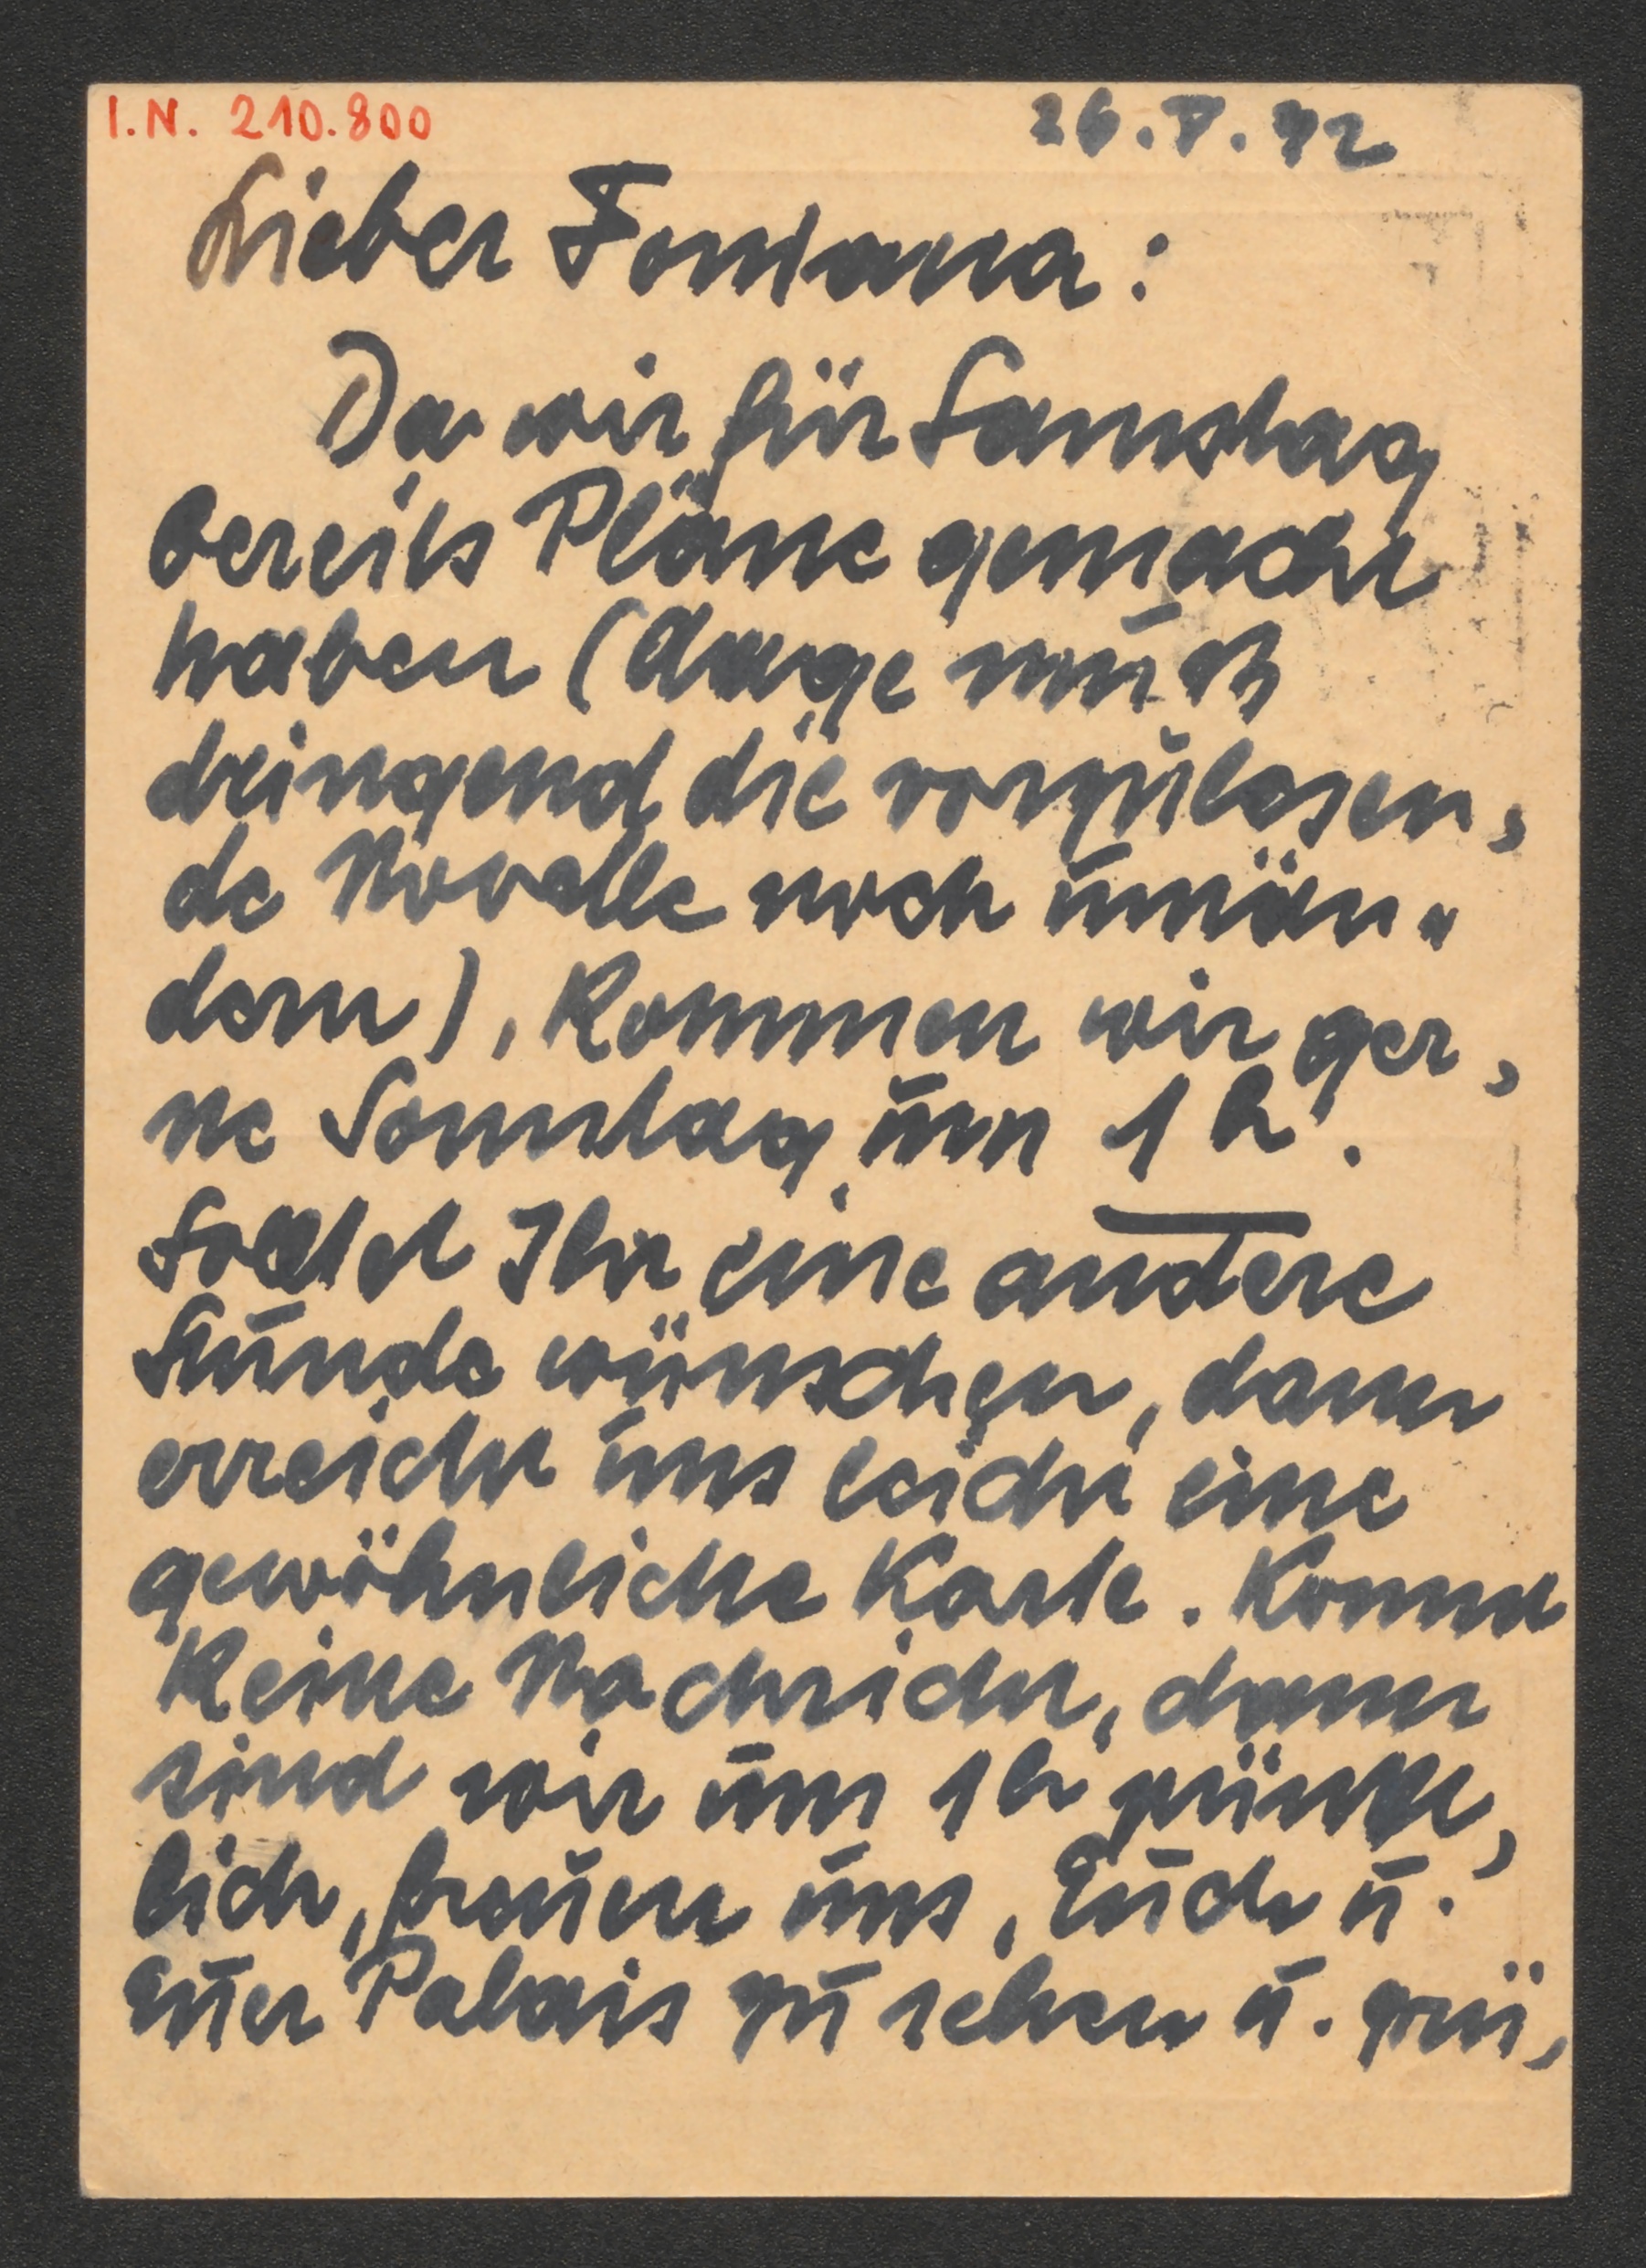 I.N. 210.800
26.V.42
Lieber Fontana:
Da wir für Samstag
bereits Pläne gemacht
haben (Auge muß
dringend die vorzulesen,
de Novelle noch umän-
dern), kommen wir ger,
ne Sonntag um 1 h.
Solltet Ihr eine andere
Stunde wünschen, dann
erreicht uns leicht eine
gewöhnliche Karte. Kommt
keine Nachricht, dann
sind wir um 1h pünkt,
lich, freuen uns, Euch u.
Euer Palais zu sehen u. grü,